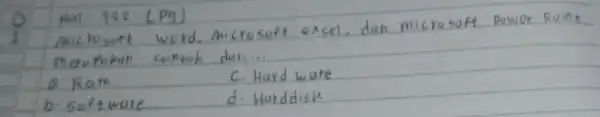 Hal 122 (Pg)
Microsoft word, microsoft excel, dan microsoft Power Point
merupakan contoh dari...
a. Ram c. Hard ware
b. Software d. Harddisk